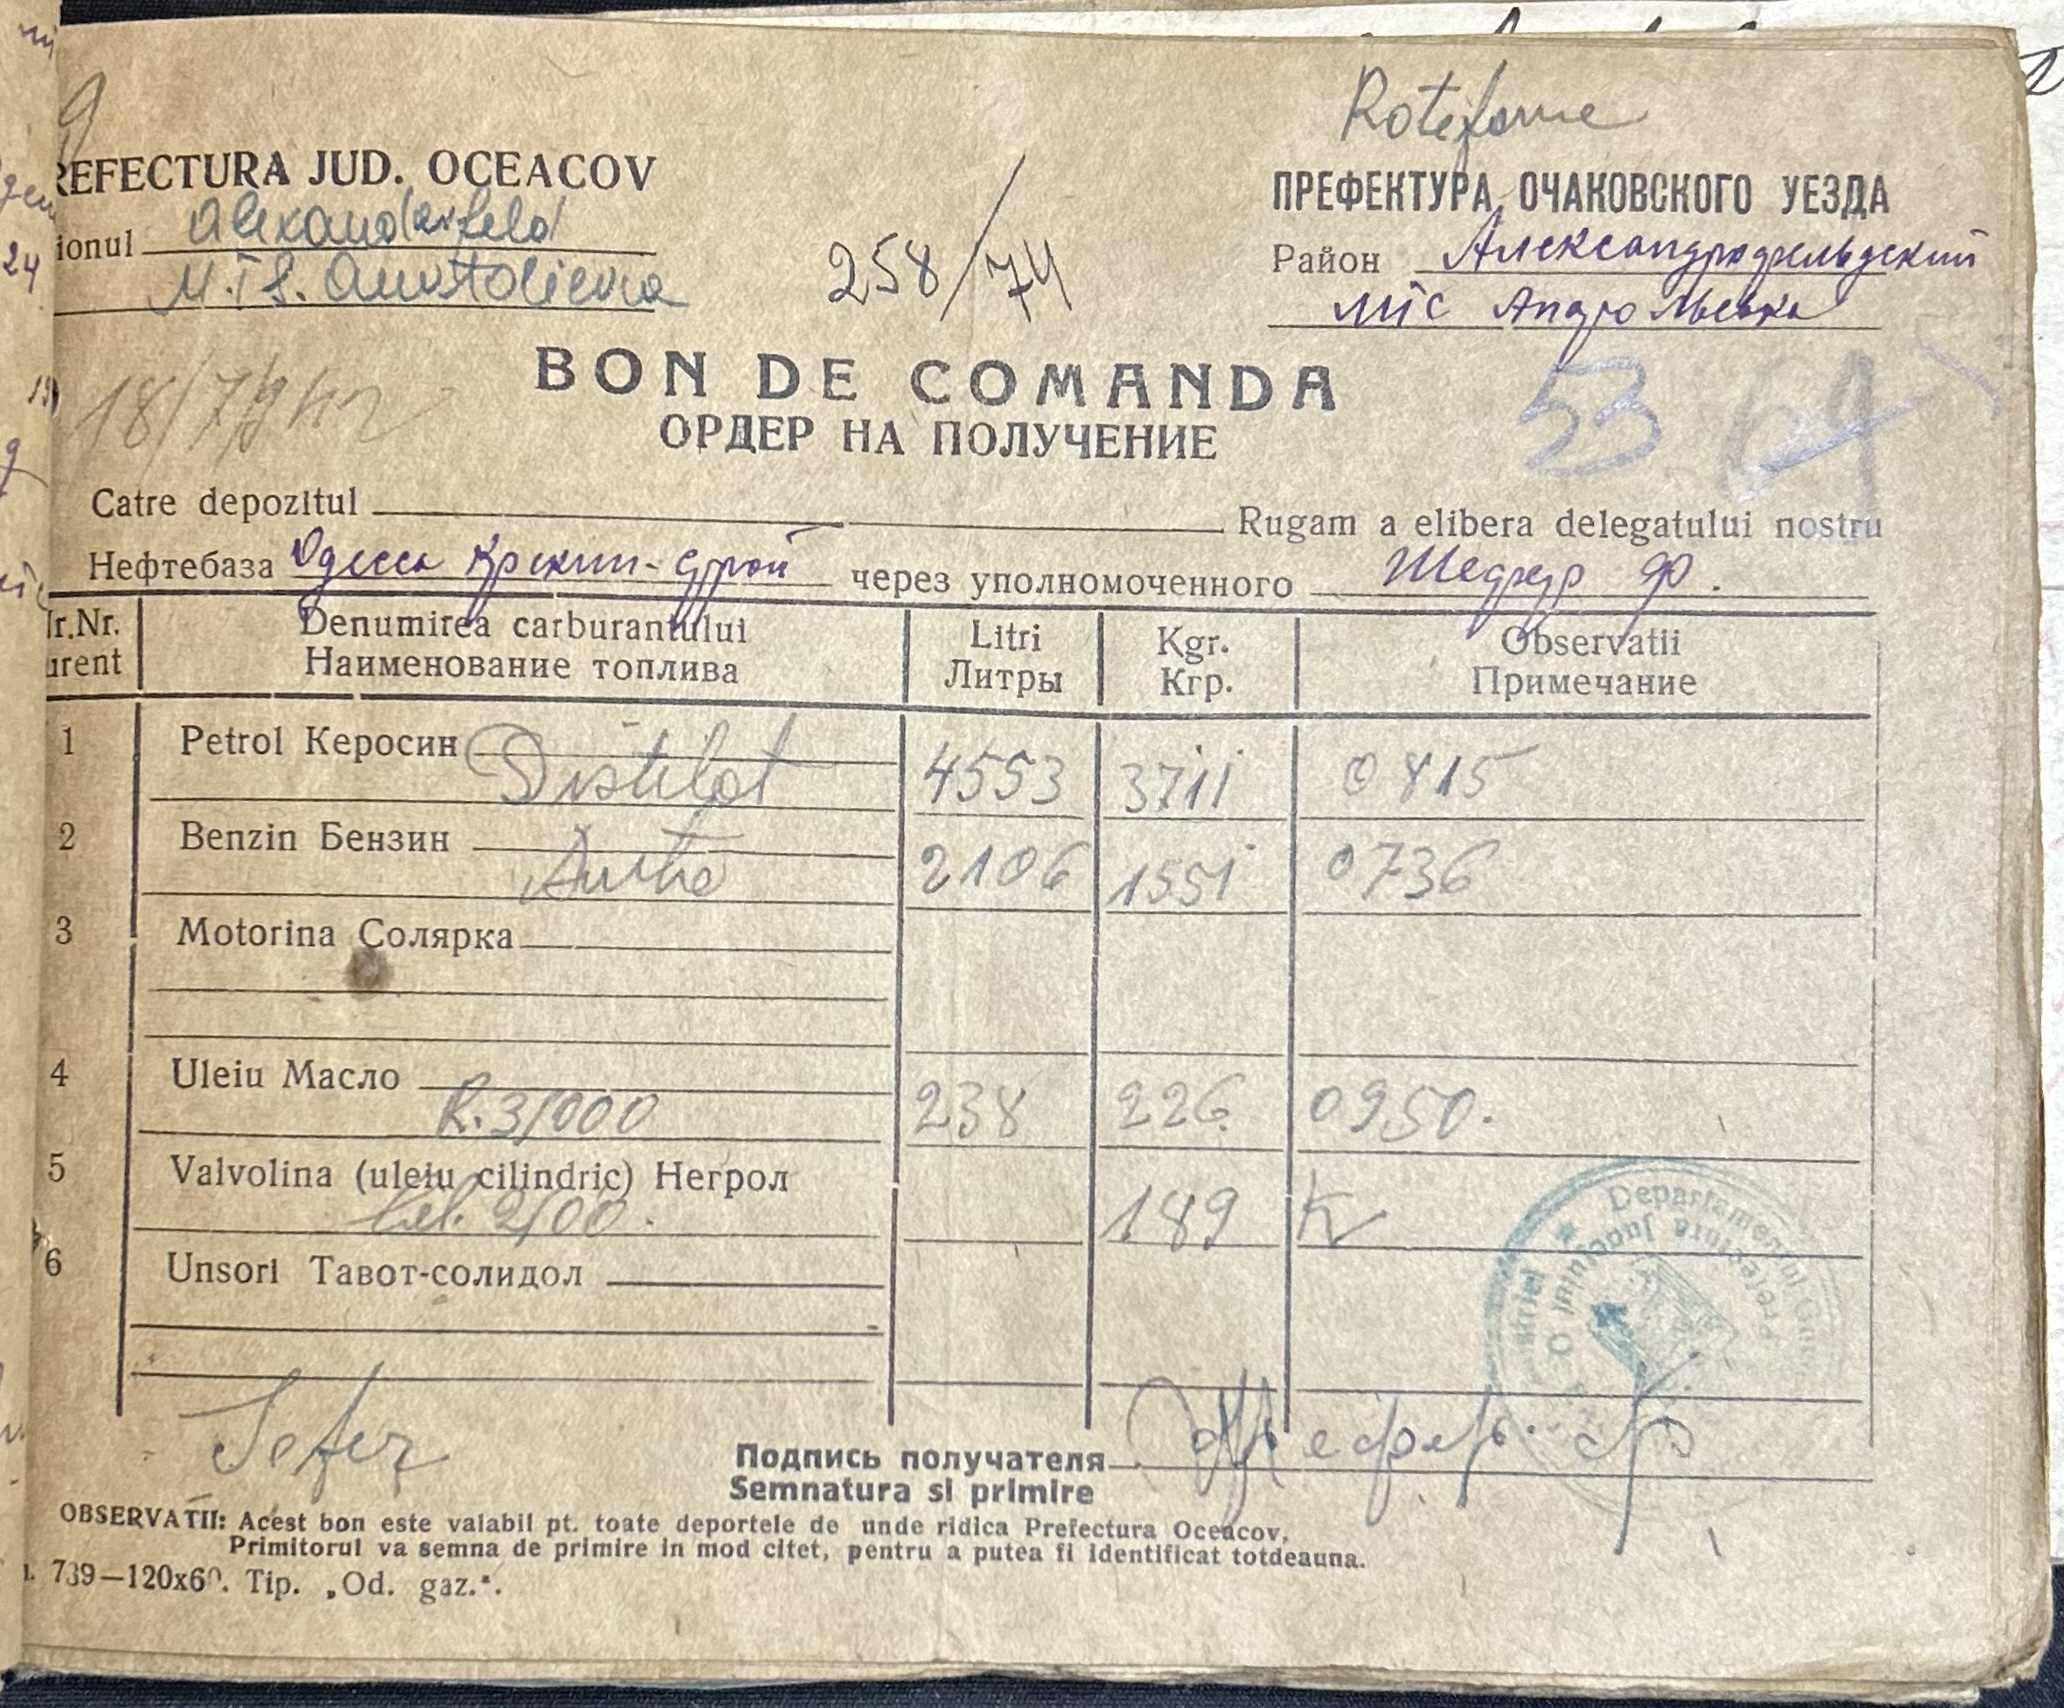 REFECTURA JUD. OCEACOV
ПРЕФЕКТУРА ОЧАКОВСКОГО УЕЗДА
ionul Alexanderfeld
Район Александрфельдский
258/74
М.T.S.
мтс
18/7
53
BON DE COMANDA
ОРДЕР НА ПОЛУЧЕНИЕ
Catre depozitul Rugam a elibera delegatului nostru
Нефтебаза Одесса Крекин-строй через уполномоченного Шефер Ф.
r.Nr. Denumirea carburantului Litri Kgr. Observatii
urent Наименование топлива Литры Кгр. Примечание
1 Petrol Керосин Distilat 4553 3711 0815
2 Benzin Бензин Auto 2106 1551 0736
3 Motorina Солярка
4 Uleiu Масло R.3/000 238 226 0950.
5 Valvolina (uleiu cilindric) Негрол 2/00. 189 K
6 Unsori Тавот-солидол
Departamentul
Prefectura Judetului O
Sefer
Подпись получателя
Semnatura si primire
OBSERVATII: Acest bon este valabil pt. toate deportele de unde ridica Prefectura Oceacov,
Primitorul va semna de primire in mod citet, pentru a putea fi identificat totdeauna.
739—120x60. Tip. „Od. gaz.".